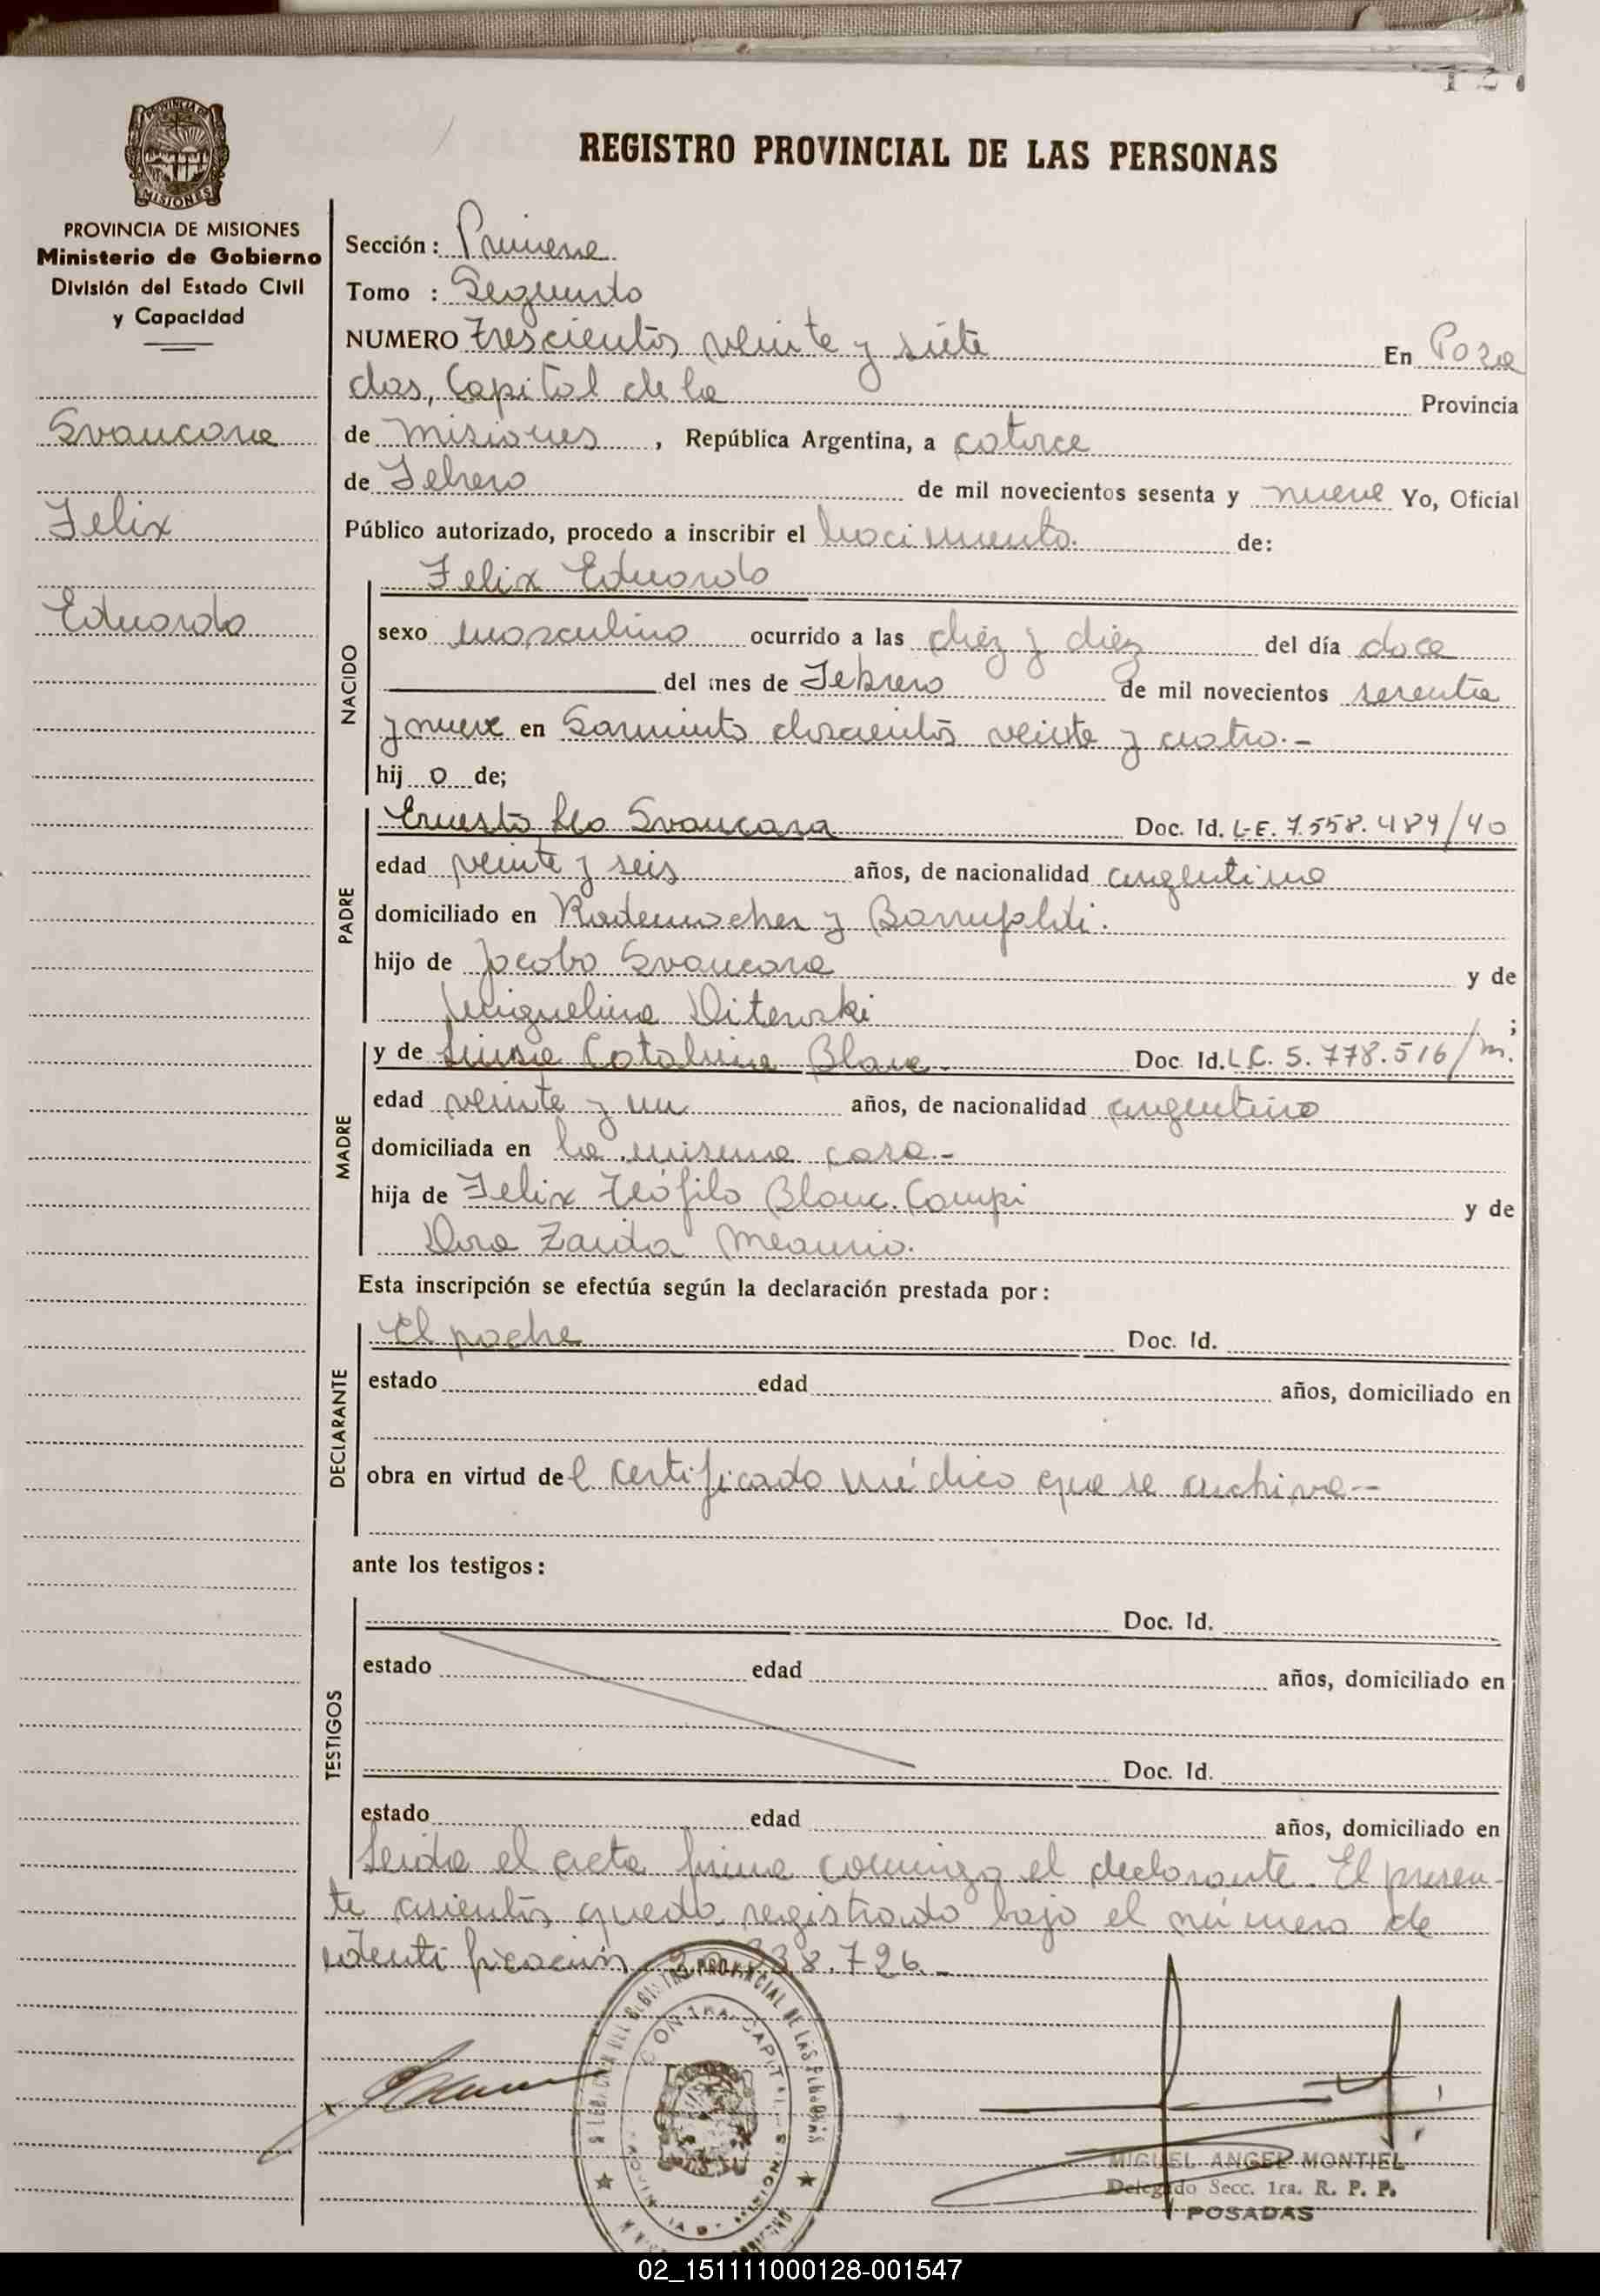 REGISTRO PROVINCIAL DE LAS PERSONAS
MISIONES
PROVINCIA DE MISIONES
Ministerio de Gobierno
División del Estado Civil
y Capacidad
Svancara
Felix
Eduardo
Sección: Primera
Tomo : Segundo
NUMERO Trescientos veinte y siete En Posa
das, Capital de la Provincia
de Misiones, República Argentina, a catorce
de Febrero de mil novecientos sesenta y nueve Yo, Oficial
Público autorizado, procedo a inscribir el nacimiento. de:
NACIDO
Felix Eduardo
sexo masculino ocurrido a las diéz y diéz del día doce
del mes de Febrero de mil novecientos sesenta
y nueve en Sarmiento doscientos veinte y cuatro.-
hij o de;
PADRE
Ernesto Leo Svancara Doc. Id. L-E. 7.558.484/40
edad veinte y seis años, de nacionalidad argentina
domiciliado en Rademacher y Barrufaldi.
hijo de Jacobo Svancara y de
Miguelina Diteruski ;
MADRE
y de Luisa Catalina Blanc. Doc. Id. L.C. 5.778.516/m.
edad veinte y un años, de nacionalidad argentina
domiciliada en la misma casa.-
hija de Felix Teófilo Blanc Campi y de
Dora Zaida Meaurio.
Esta inscripción se efectúa según la declaración prestada por:
DECLARANTE
El padre Doc. Id.
estado edad años, domiciliado en
obra en virtud del certificado médico que se archiva--
ante los testigos:
TESTIGOS
Doc. Id.
estado edad años, domiciliado en
Doc. Id.
estado edad años, domiciliado en
Leida el acta firma conmigo el declarante. El presen-
te asiento queda registrado bajo el número de
identificación 20.338.726.-
MIGUEL ANGEL MONTIEL
Delegado Secc. 1ra. R. P. P.
POSADAS
02_151111000128-001547